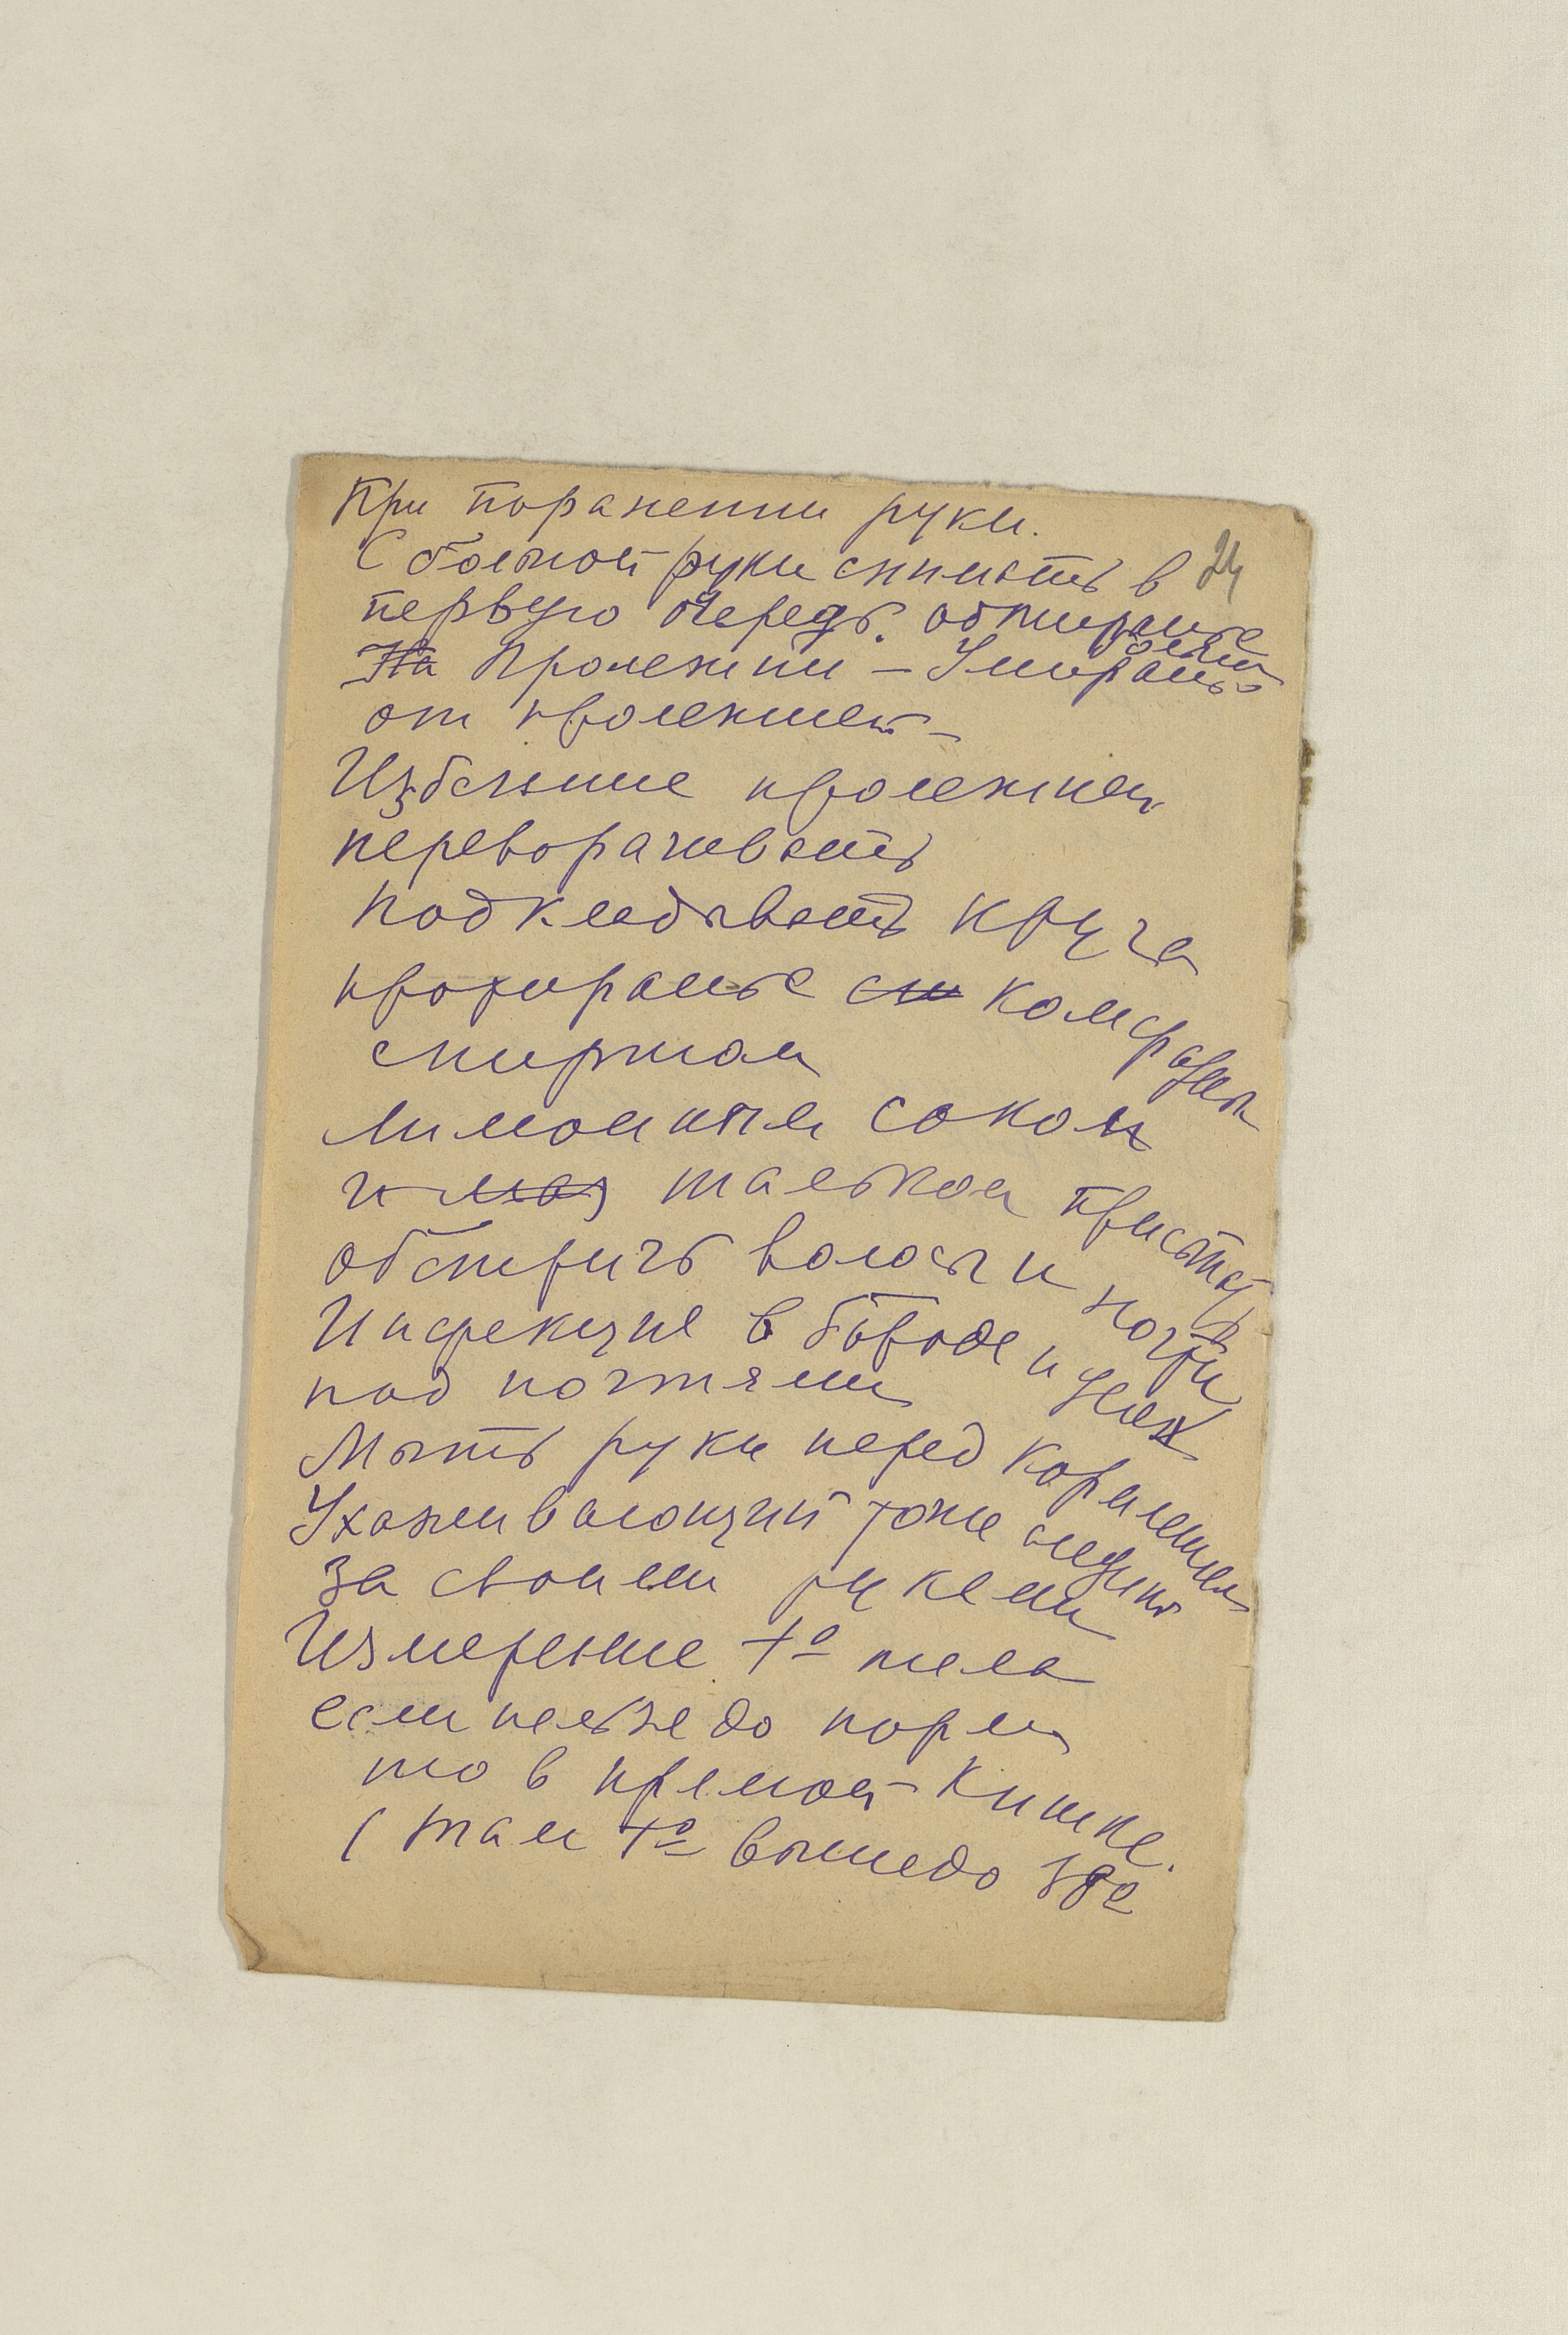 При поранении руки.
С больной руки снимать в 24
первую очередь. обтирание
~~На~~ Пролежни – Умирают
от пролежней –
Избежание пролежней
переворачивать
подкладывать круга
протирание ~~сп~~ камфарным
спиртом
лимонным соком
и ~~маз~~ тальком присыпать
обстричь волосы и ногти
Инфекция в бороде и усах
под ногтями
Мыть руки перед кормлением
Ухаживающий тоже следит
за своими руками
Измерение t° тела
если нельзя до норм
то в прямой кишке.
(там t° выше до 38°